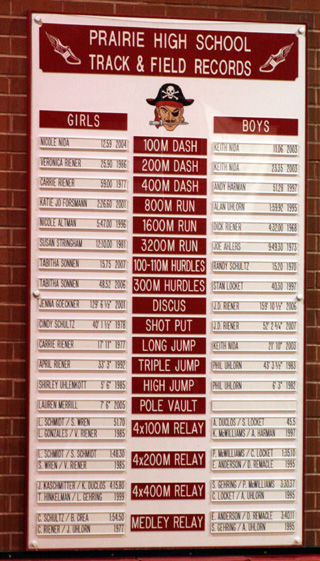 PRAIRIE HIGH SCHOOL
TRACK & FIELD RECORDS
GIRLS BOYS
NICOLE NIDA 12.59 2004 100M DASH KEITH NIDA 11.06 2003
VERONICA RIENER 25.90 1986 200M DASH KEITH NIDA 23.35 2003
CARRIE RIENER 59.00 1977 400M DASH ANDY HARMAN 51.29 1997
KATIE JO FORSMANN 2:26.60 2001 800M RUN ALAN UHLORN 1:59.92 1995
NICOLE ALTMAN 5:47.00 1996 1600M RUN DICK RIENER 4:32.00 1968
SUSAN STRINGHAM 12:10.00 1981 3200M RUN JOE AHLERS 9:49.30 1973
TABITHA SONNEN 15.75 2007 100-110M HURDLES RANDY SCHULTZ 15.20 1970
TABITHA SONNEN 48.32 2006 300M HURDLES STAN LOCKET 40.90 1997
JENNA GOECKNER 129' 6 1/2" 2001 DISCUS J.D. RIENER 2006
CINDY SCHULTZ 40' 1 1/2" 1978 SHOT PUT J.D. RIENER 2007
CARRIE RIENER 17' 11" 1977 LONG JUMP KEITH NIDA 21' 10" 2003
APRIL RIENER 33' 3" 1992 TRIPLE JUMP PHIL UHLORN 43' 3 1/2" 1983
SHIRLEY UHLENKOTT 5' 6" 1985 HIGH JUMP PHIL UHLORN 6' 3" 1982
LAUREN MERRILL 7' 6" 2005 POLE VAULT
L. SCHMIDT / S. WREN 51.70 4x100M RELAY A. DUCLOS / S. LOCKET 45.5
L. GONZALES / V. RIENER 1985 K. McWILLIAMS / A. HARMAN 1997
L. SCHMIDT / S. SCHMIDT 1:48.30 4x200M RELAY P. McWILLIAMS / C. LOCKET 1:35.10
S. WREN / V. RIENER 1985 E. ANDERSON / D. REMACLE 1995
J. KASCHMITTER / K. DUCLOS 4:15.80 4x400M RELAY S. GEHRING / P. McWILLIAMS 3:30.37
T. HINKELMAN / L. GEHRING 1999 C. LOCKET / A. UHLORN 1995
C. SCHULTZ / B. CREA 1:54.50 MEDLEY RELAY E. ANDERSON / D. REMACLE 3:40.11
C. RIENER / J. UHLORN 1977 S. GEHRING / A. UHLORN 1995